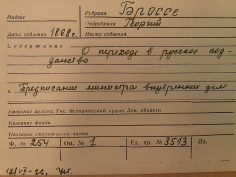 Индекс Рубрика Броссе
Подрубрика Георгий
Дата события 1868 г. Место события
Содержание О переходе в русское под-
данство
Предписание министра внутренних дел
Название архива: Гос. Исторический архив Лен. области
Название фонда
Название структурной части
Ф. № 254 Оп. № 1 Ед. хр. № 3513 Лл.